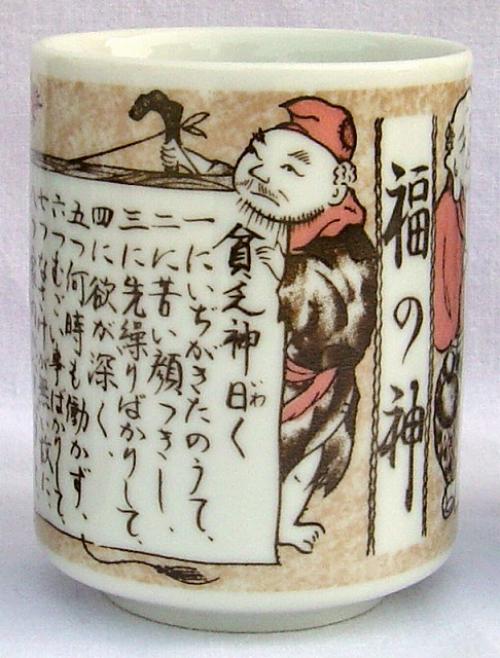 福の神
貧乏神曰く
いわ
一にいぢがきたのうて、
二に苦い顔つきし、
三に先繰りばかりして、
四に欲が深く、
五つ何時も働かず、
六つむごい事ばかりして、
七つなさけが無